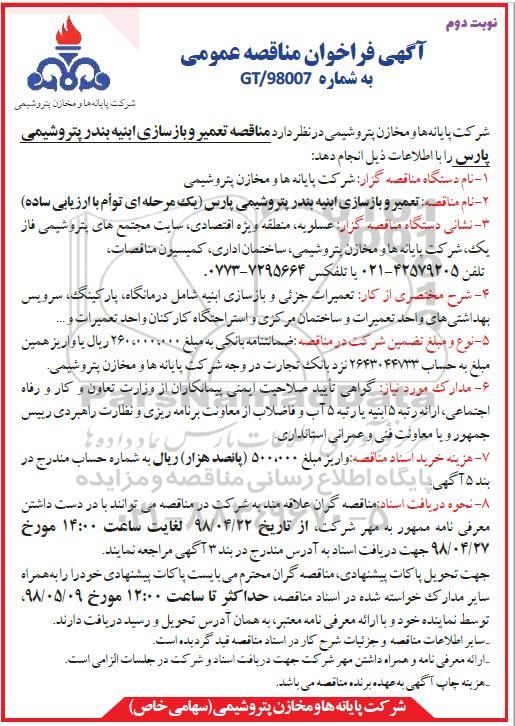 نوبت دوم
آگهی فراخوان مناقصه عمومی
به شماره GT/98007
شرکت پایانه‌ها و مخازن پتروشیمی
شرکت پایانه‌ها و مخازن پتروشیمی در نظر دارد مناقصه تعمیر و بازسازی ابنیه بندر پتروشیمی
پارس را با اطلاعات ذیل انجام دهد:
۱- نام دستگاه مناقصه گزار: شرکت پایانه ها و مخازن پتروشیمی
۲- نام مناقصه: تعمیر و بازسازی ابنیه بندر پتروشیمی پارس (یک مرحله ای توأم با ارزیابی ساده)
۳- نشانی دستگاه مناقصه گزار: عسلویه، منطقه ویژه اقتصادی، سایت مجتمع های پتروشیمی فاز
یک، شرکت پایانه ها و مخازن پتروشیمی، ساختمان اداری، کمیسیون مناقصات،
تلفن ۴۲۵۷۹۲۰۵-۰۲۱ یا تلفکس ۷۲۹۵۶۶۴-۰۷۷۳.
۴- شرح مختصری از کار: تعمیرات جزئی و بازسازی ابنیه شامل درمانگاه، پارکینگ، سرویس
بهداشتی های واحد تعمیرات و ساختمان مرکزی و استراحتگاه کارکنان واحد تعمیرات و...
۵- نوع و مبلغ تضمین شرکت در مناقصه: ضمانتنامه بانکی به مبلغ ۲۶۰،۰۰۰،۰۰۰ ریال یا واریز همین
مبلغ به حساب ۲۶۴۳۰۴۴۷۳۳ نزد بانک تجارت در وجه شرکت پایانه ها و مخازن پتروشیمی.
۶- مدارک مورد نیاز: گواهی تأیید صلاحیت ایمنی پیمانکاران از وزارت تعاون و کار و رفاه
اجتماعی، ارائه رتبه ۵ ابنیه یا رتبه ۵ آب و فاضلاب از معاونت برنامه ریزی و نظارت راهبردی رییس
جمهور و یا معاونت فنی و عمرانی استانداری.
۷- هزینه خرید اسناد مناقصه: واریز مبلغ ۵۰۰،۰۰۰ (پانصد هزار) ریال به شماره حساب مندرج در
بند ۵ آگهی.
۸- نحوه دریافت اسناد: مناقصه گران علاقه مند به شرکت در مناقصه می توانند با در دست داشتن
معرفی نامه ممهور به مهر شرکت، از تاریخ ۹۸/۰۴/۲۲ لغایت ساعت ۱۴:۰۰ مورخ
۹۸/۰۴/۲۷ جهت دریافت اسناد به آدرس مندرج در بند ۳ آگهی مراجعه نمایند.
جهت تحویل پاکات پیشنهادی، مناقصه گران محترم می بایست پاکات پیشنهادی خود را به همراه
سایر مدارک خواسته شده در اسناد مناقصه، حداکثر تا ساعت ۱۲:۰۰ مورخ ۹۸/۰۵/۰۹،
توسط نماینده خود و با ارائه معرفی نامه معتبر، به همان آدرس تحویل و رسید دریافت دارند.
_سایر اطلاعات مناقصه و جزئیات شرح کار در اسناد مناقصه قید گردیده است.
_ارائه معرفی نامه و همراه داشتن مهر شرکت جهت دریافت اسناد و شرکت در جلسات الزامی است.
_هزینه چاپ آگهی به عهده برنده مناقصه می باشد.
شرکت پایانه ها و مخازن پتروشیمی (سهامی خاص)
ParsNamadData
پایگاه اطلاع رسانی مناقصه و مزایده